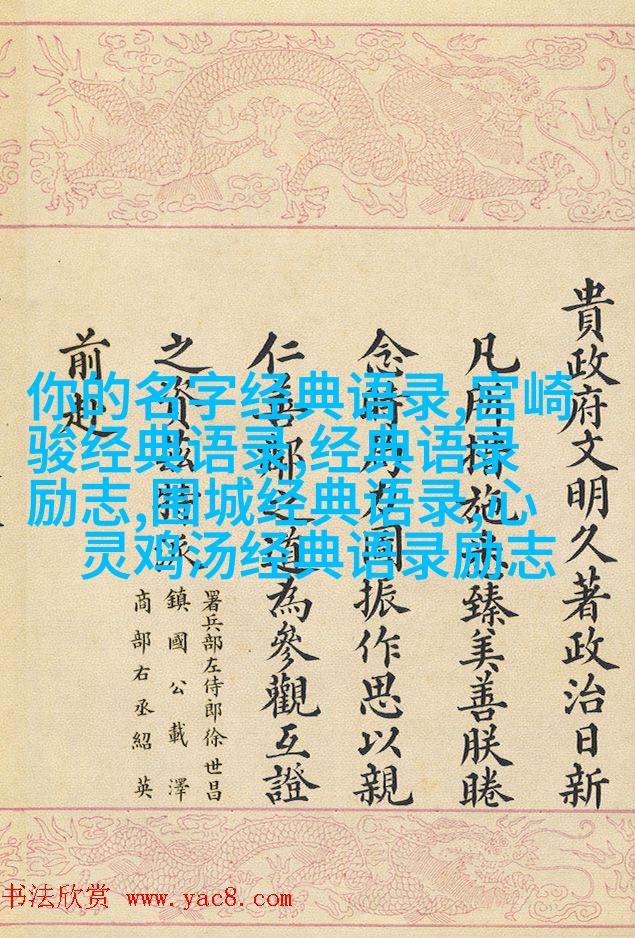 貴政府文明久著政治日新
凡所措施悉臻美善朕睠
念時局力圖振作思以親
仁善鄰之道為參觀互證
之資茲特派
署兵部左侍郎徐世昌
鎮國公載澤
商部右丞紹英
前赴
你的名字经典语录,宫崎
骏经典语录,经典语录
励志,围城经典语录,心
灵鸡汤经典语录励志
书法欣赏 www.yac8.com